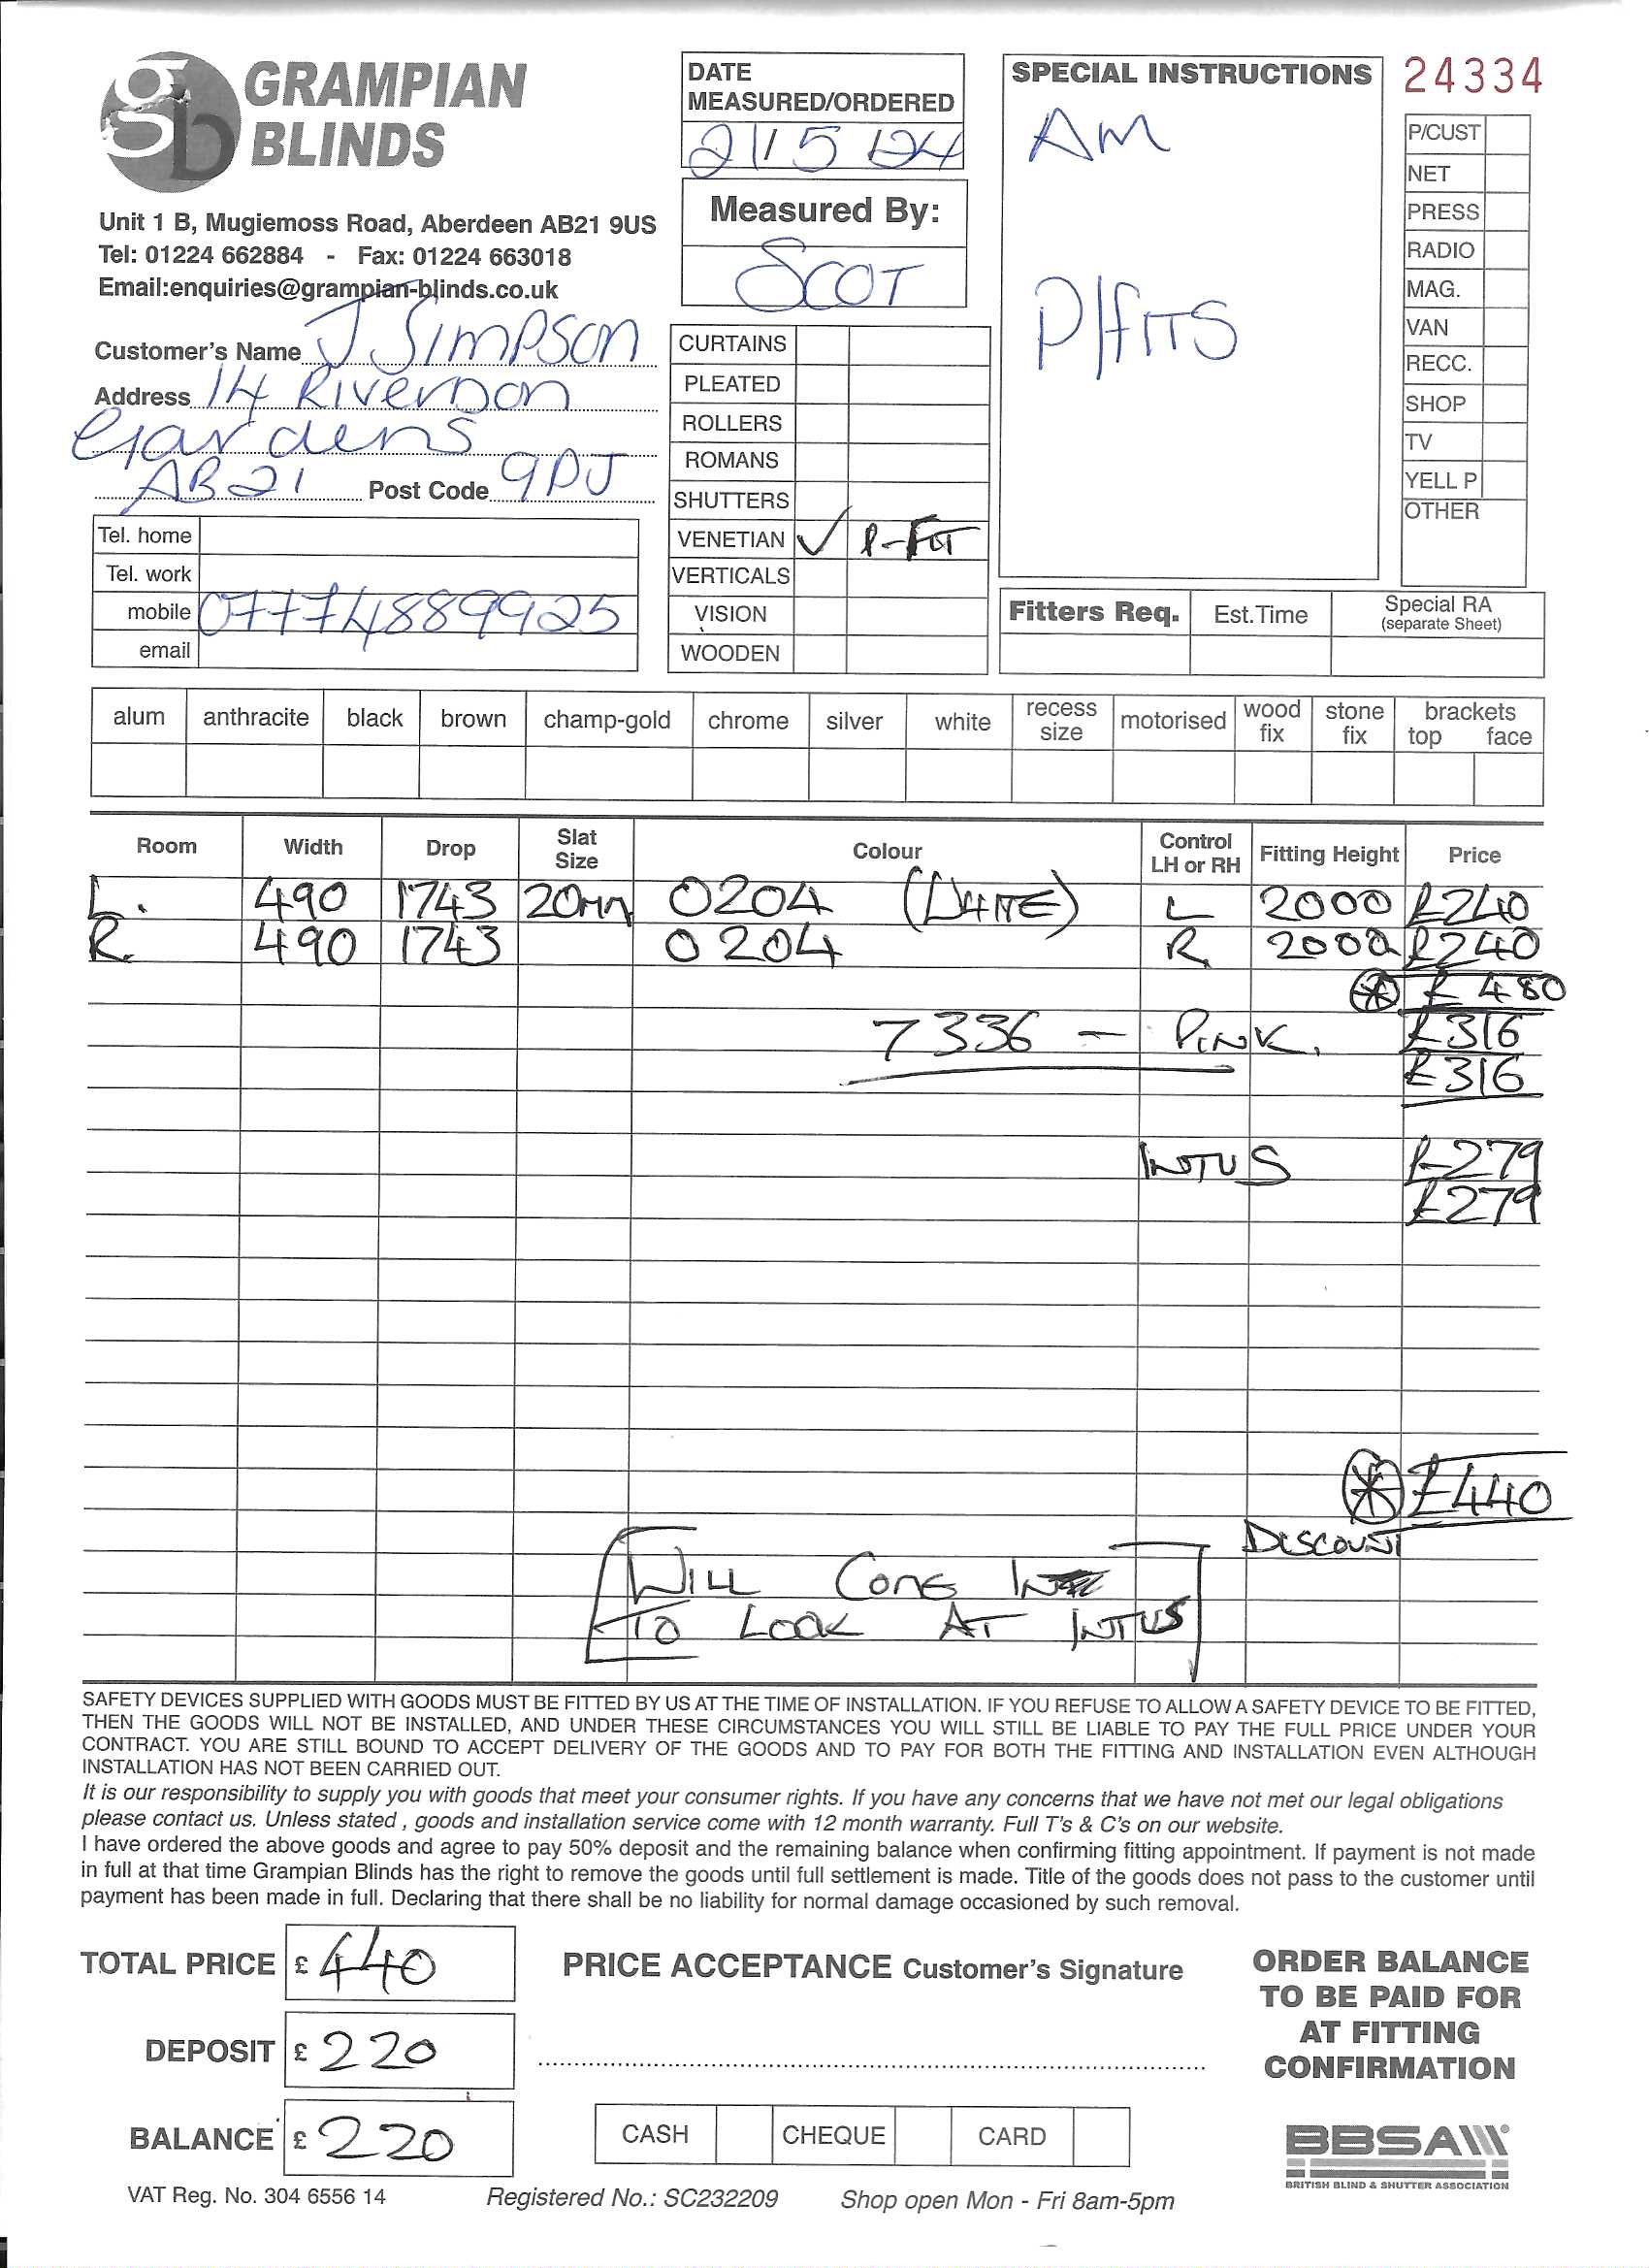 GRAMPIAN
BLINDS
Unit 1 B, Mugiemoss Road, Aberdeen AB21 9US
Tel: 01224 662884 - Fax: 01224 663018
Email:enquiries@grampian-blinds.co.uk
Customer's Name J Simpson
Address 14 Rivernon
Gardens
AB21 Post Code 9DJ
Tel. home
Tel. work
mobile 07774889925
email
DATE
MEASURED/ORDERED
21/5/24
Measured By:
SCOT
CURTAINS
PLEATED
ROLLERS
ROMANS
SHUTTERS
VENETIAN ✓ P-FIT
VERTICALS
VISION
WOODEN
SPECIAL INSTRUCTIONS
AM
P/FITS
24334
P/CUST
NET
PRESS
RADIO
MAG.
VAN
RECC.
SHOP
TV
YELL P
OTHER
Fitters Req. Est.Time Special RA
(separate Sheet)
alum anthracite black brown champ-gold chrome silver white recess size motorised wood fix stone fix brackets top face
Room Width Drop Slat Size Colour Control LH or RH Fitting Height Price
L. 490 1743 20mm 0204 (WHITE) L 2000 £240
R. 490 1743 0204 R 2000 £240
£480
7336 - PINK. £316
£316
INTUS £279
£279
£440
DISCOUNT
WILL COME IN
TO LOOK AT INTUS
SAFETY DEVICES SUPPLIED WITH GOODS MUST BE FITTED BY US AT THE TIME OF INSTALLATION. IF YOU REFUSE TO ALLOW A SAFETY DEVICE TO BE FITTED,
THEN THE GOODS WILL NOT BE INSTALLED, AND UNDER THESE CIRCUMSTANCES YOU WILL STILL BE LIABLE TO PAY THE FULL PRICE UNDER YOUR
CONTRACT. YOU ARE STILL BOUND TO ACCEPT DELIVERY OF THE GOODS AND TO PAY FOR BOTH THE FITTING AND INSTALLATION EVEN ALTHOUGH
INSTALLATION HAS NOT BEEN CARRIED OUT.
It is our responsibility to supply you with goods that meet your consumer rights. If you have any concerns that we have not met our legal obligations
please contact us. Unless stated , goods and installation service come with 12 month warranty. Full T's & C's on our website.
I have ordered the above goods and agree to pay 50% deposit and the remaining balance when confirming fitting appointment. If payment is not made
in full at that time Grampian Blinds has the right to remove the goods until full settlement is made. Title of the goods does not pass to the customer until
payment has been made in full. Declaring that there shall be no liability for normal damage occasioned by such removal.
TOTAL PRICE £ 440
DEPOSIT £ 220
BALANCE £ 220
PRICE ACCEPTANCE Customer's Signature
CASH CHEQUE CARD
ORDER BALANCE
TO BE PAID FOR
AT FITTING
CONFIRMATION
BBSA
BRITISH BLIND & SHUTTER ASSOCIATION
VAT Reg. No. 304 6556 14 Registered No.: SC232209 Shop open Mon - Fri 8am-5pm